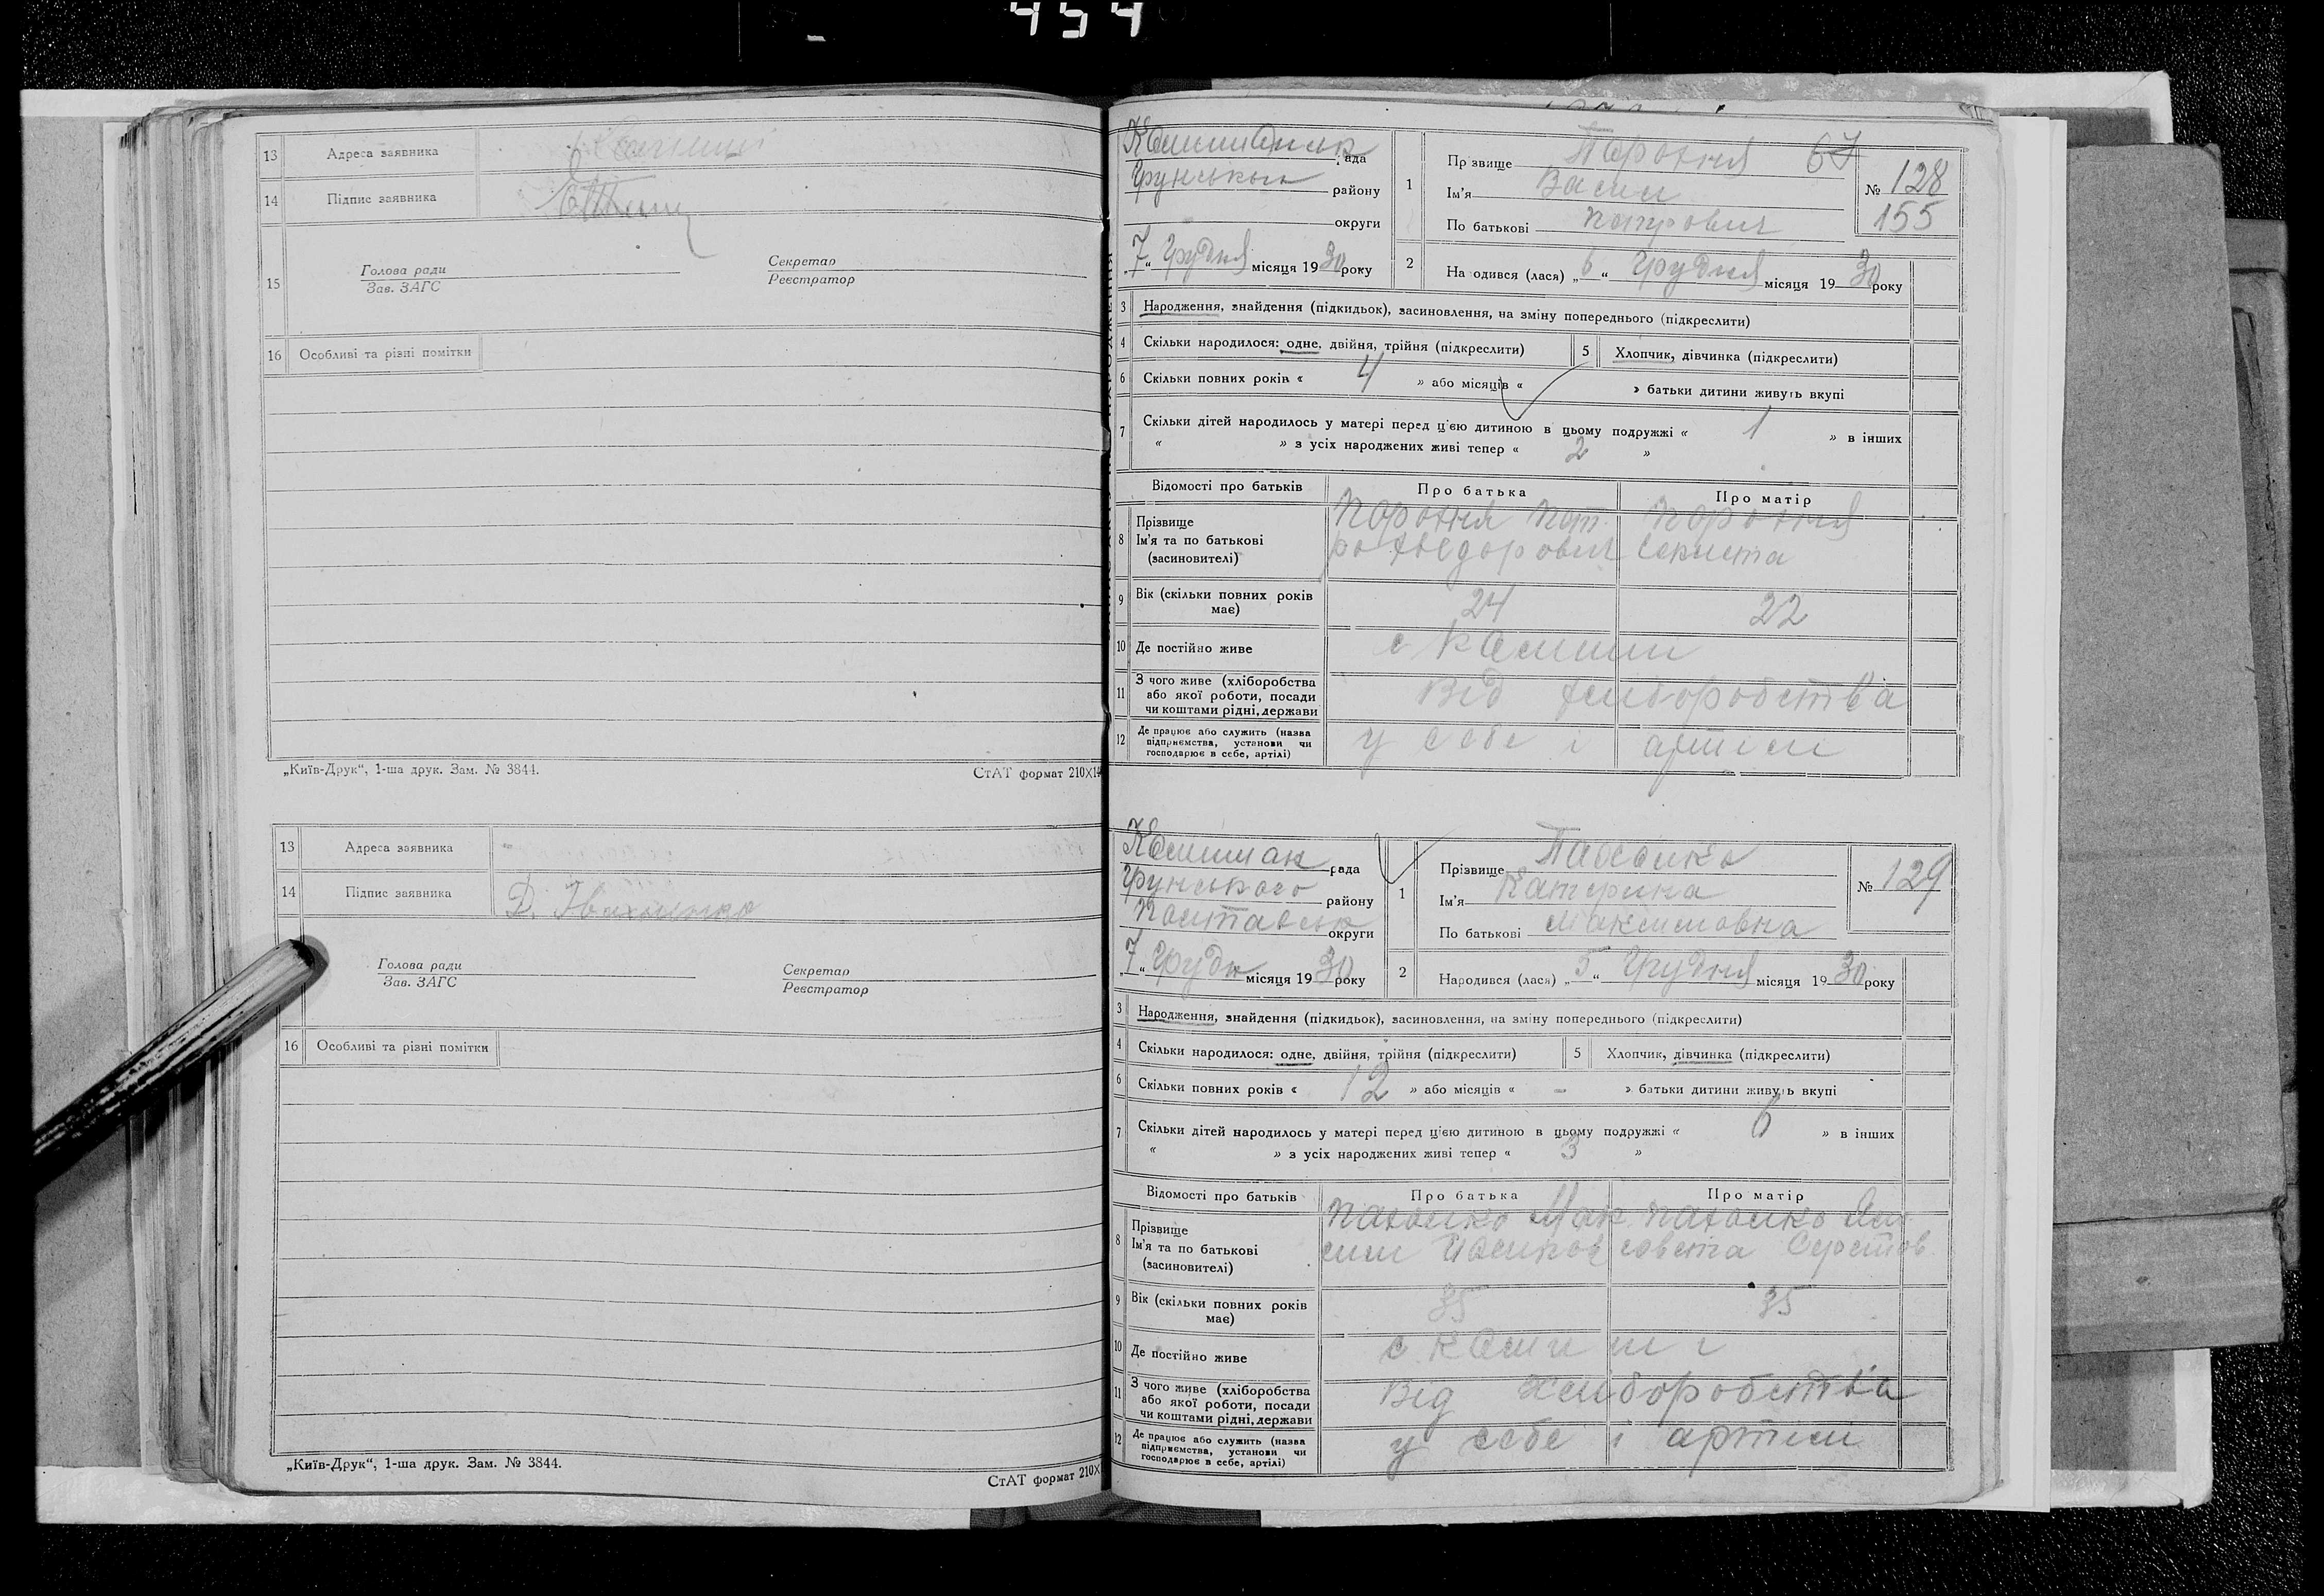 454
13 Адреса заявника
14 Підпис заявника
15 Голова ради Секретар
Зав. ЗАГС Реєстратор
16 Особливі та різні помітки
„Київ-Друк“, 1-ша друк. Зам. № 3844. СтАТ формат 210×14
13 Адреса заявника -
14 Підпис заявника Д.
Голова ради Секретар
Зав. ЗАГС Реєстратор
16 Особливі та різні помітки
„Київ-Друк“, 1-ша друк. Зам. № 3844. СтАТ формат 210×
рада
району
округи
„7“ Грудня місяця 1930 року
1 Прізвище 67
Ім'я Васил
По батькові
№ 128
155
2 На одився (лася) „6“ Грудня місяця 1930 року
3 Народження, знайдення (підкидьок), засиновлення, на зміну попереднього (підкреслити)
4 Скільки народилося: одне, двійня, трійня (підкреслити) 5 Хлопчик, дівчинка (підкреслити)
6 Скільки повних років « 4 » або місяців « » батьки дитини живуть вкупі
7 Скільки дітей народилось у матері перед цією дитиною в цьому подружжі « 1 » в інших
« » з усіх народжених живі тепер « 2 »
Відомості про батьків Про батька Про матір
8 Прізвище
Ім'я та по батькові
(засиновителі)
9 Вік (скільки повних років має) 24 22
10 Де постійно живе с
11 З чого живе (хліборобства або якої роботи, посади чи коштами рідні, держави Від хліборобства
12 Де працює або служить (назва підприємства, установи чи господарює в себе, артілі) у себе і артіли
рада
Грунського району
округи
„7“ Грудн місяця 1930 року
1 Прізвище
Ім'я Катерина
По батькові Максимовна
№ 129
2 Народився (лася) „5“ Грудня місяця 1930 року
3 Народження, знайдення (підкидьок), засиновлення, на зміну попереднього (підкреслити)
4 Скільки народилося: одне, двійня, трійня (підкреслити) 5 Хлопчик, дівчинка (підкреслити)
6 Скільки повних років « 12 » або місяців « - » батьки дитини живуть вкупі
7 Скільки дітей народилось у матері перед цією дитиною в цьому подружжі « 6 » в інших
« » з усіх народжених живі тепер « 3 »
Відомості про батьків Про батька Про матір
8 Прізвище
Ім'я та по батькові
(засиновителі)
9 Вік (скільки повних років має) 35 35
10 Де постійно живе с
11 З чого живе (хліборобства або якої роботи, посади чи коштами рідні, держави Від хліборобства
12 Де працює або служить (назва підприємства, установи чи господарює в себе, артілі) у себе і артіли